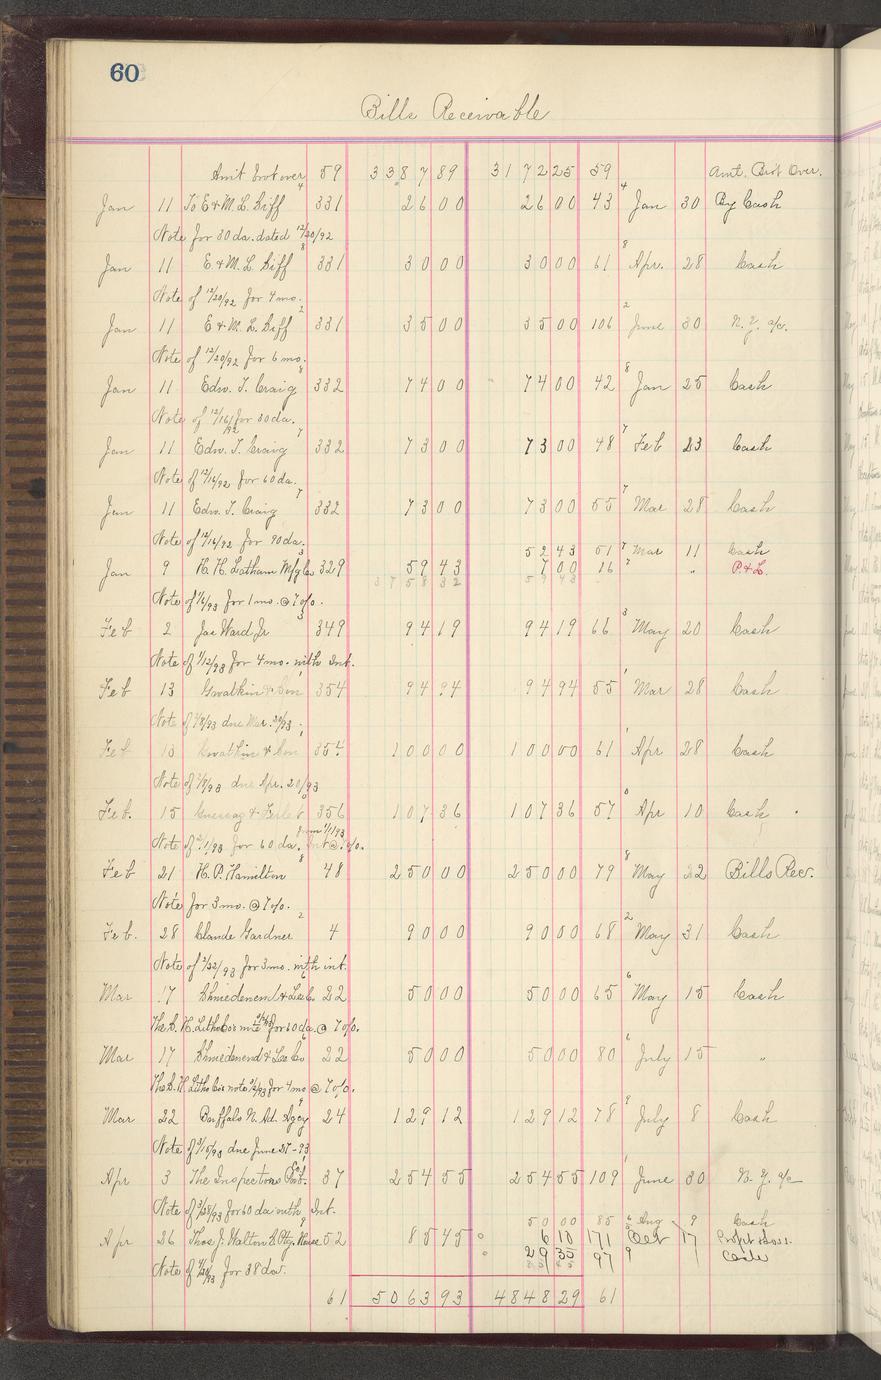 60
Bills Receivable
Amt brot over 59 3387 89 3172 25 59 Amt. Brot Over.
Jan 11 To E & M. L. 331 26 00 26 00 43 Jan 30 By Cash
Note for 30 da. dated 12/20/92
Jan 11 E. & M. L. 331 30 00 30 00 61 Apr. 28 Cash
Note of 12/20/92 for 4 mo.
Jan 11 E & M. L. 331 35 00 35 00 106 June 30 N. Y. a/c.
Note of 12/20/92 for 6 mo.
Jan 11 Edw. T. Craig 332 74 00 74 00 42 Jan 25 Cash
Note of 12/16/92 for 30 da.
Jan 11 Edw. T. Craig 332 73 00 73 00 48 Feb 23 Cash
Note of 12/16/92 for 60 da.
Jan 11 Edw. T. Craig 332 73 00 73 00 55 Mar 28 Cash
Note of 12/16/92 for 90 da.
52 43 51 Mar 11 Cash
Jan 9 H. H. Latham Mfg Co 329 59 43 7 00 16 " P. & L.
3758 32 59 43
Note of 1/6/93 for 1 mo. @ 7 o/o.
Feb 2 Jas Ward Jr 349 94 19 94 19 66 May 20 Cash
Note of 1/12/93 for 4 mo. with Int.
Feb 13 Gwatkin & Son 354 94 94 94 94 55 Mar 28 Cash
Note of 2/8/93 due Mar. 20/93
Feb 13 Gwatkin & Son 354 100 00 100 00 61 Apr 28 Cash
Note of 2/8/93 due Apr. 20/93
Feb. 15 356 107 36 107 36 57 Apr 10 Cash
Note of 2/1/93 for 60 da. Int @ o/o. from 1/1/93
Feb 21 H. P. Hamilton 48 250 00 250 00 79 May 22 Bills Rec.
Note for 3 mo. @ 7 o/o.
Feb. 28 Claude Gardner 4 90 00 90 00 68 May 31 Cash
Note of 2/22/93 for 3 mo. with int.
Mar 17 & Lee Co 22 50 00 50 00 65 May 15 Cash
The S. H. Litho Co's note for 60 da. @ 7 o/o.
Mar 17 & Lee Co 22 50 00 50 00 80 July 15 "
The S. H. Litho Co's note for 4 mo @ 7 o/o.
Mar 22 Buffalo N. Ad. Agcy 24 129 12 129 12 78 July 8 Cash
Note of 3/15/93 due June 27-93
Apr 3 The Inspectors Co. 37 254 55 254 55 109 June 30 N. Y. a/c
Note of 3/28/93 for 60 da with Int.
50 00 85 Aug 9 Cash
Apr 26 Thos J. Walton & Ptg. House 52 85 45 6 10 171 Oct 17 Profit & Loss.
29 35 97 Cash
Note of for 38 da.
61 5063 93 4848 29 61